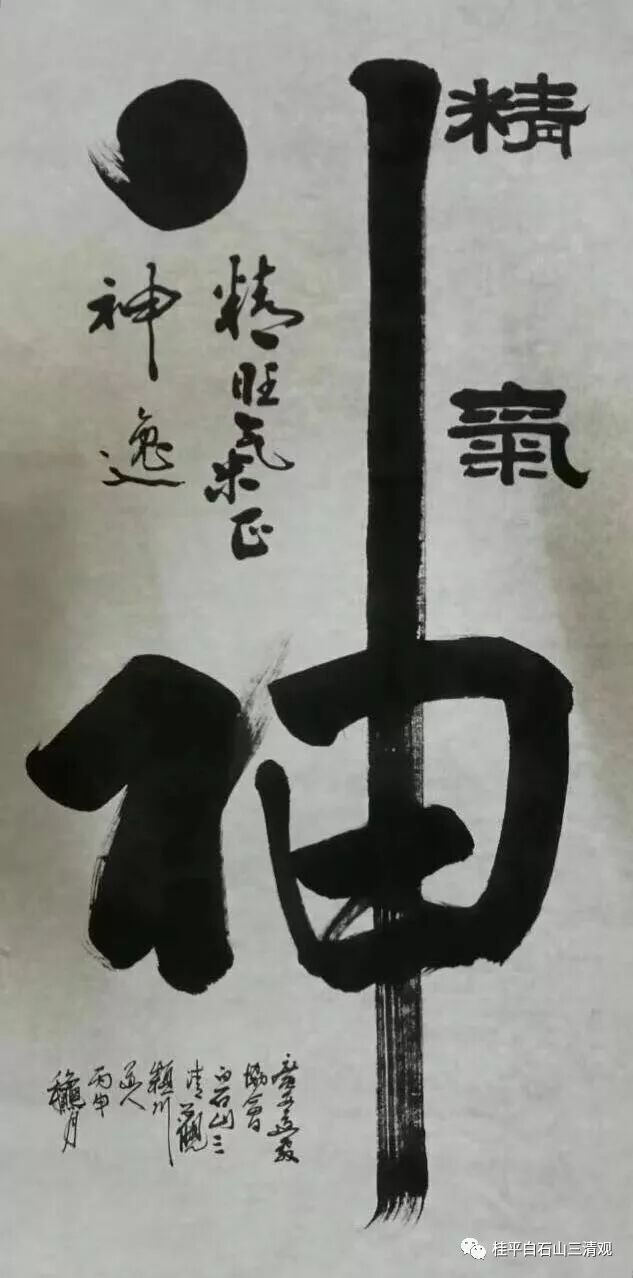 精
氣
神
精旺氣正
神逸
廣西道教
協會
白石山三
清觀
穎川
道人
丙申
龝月
桂平白石山三清观